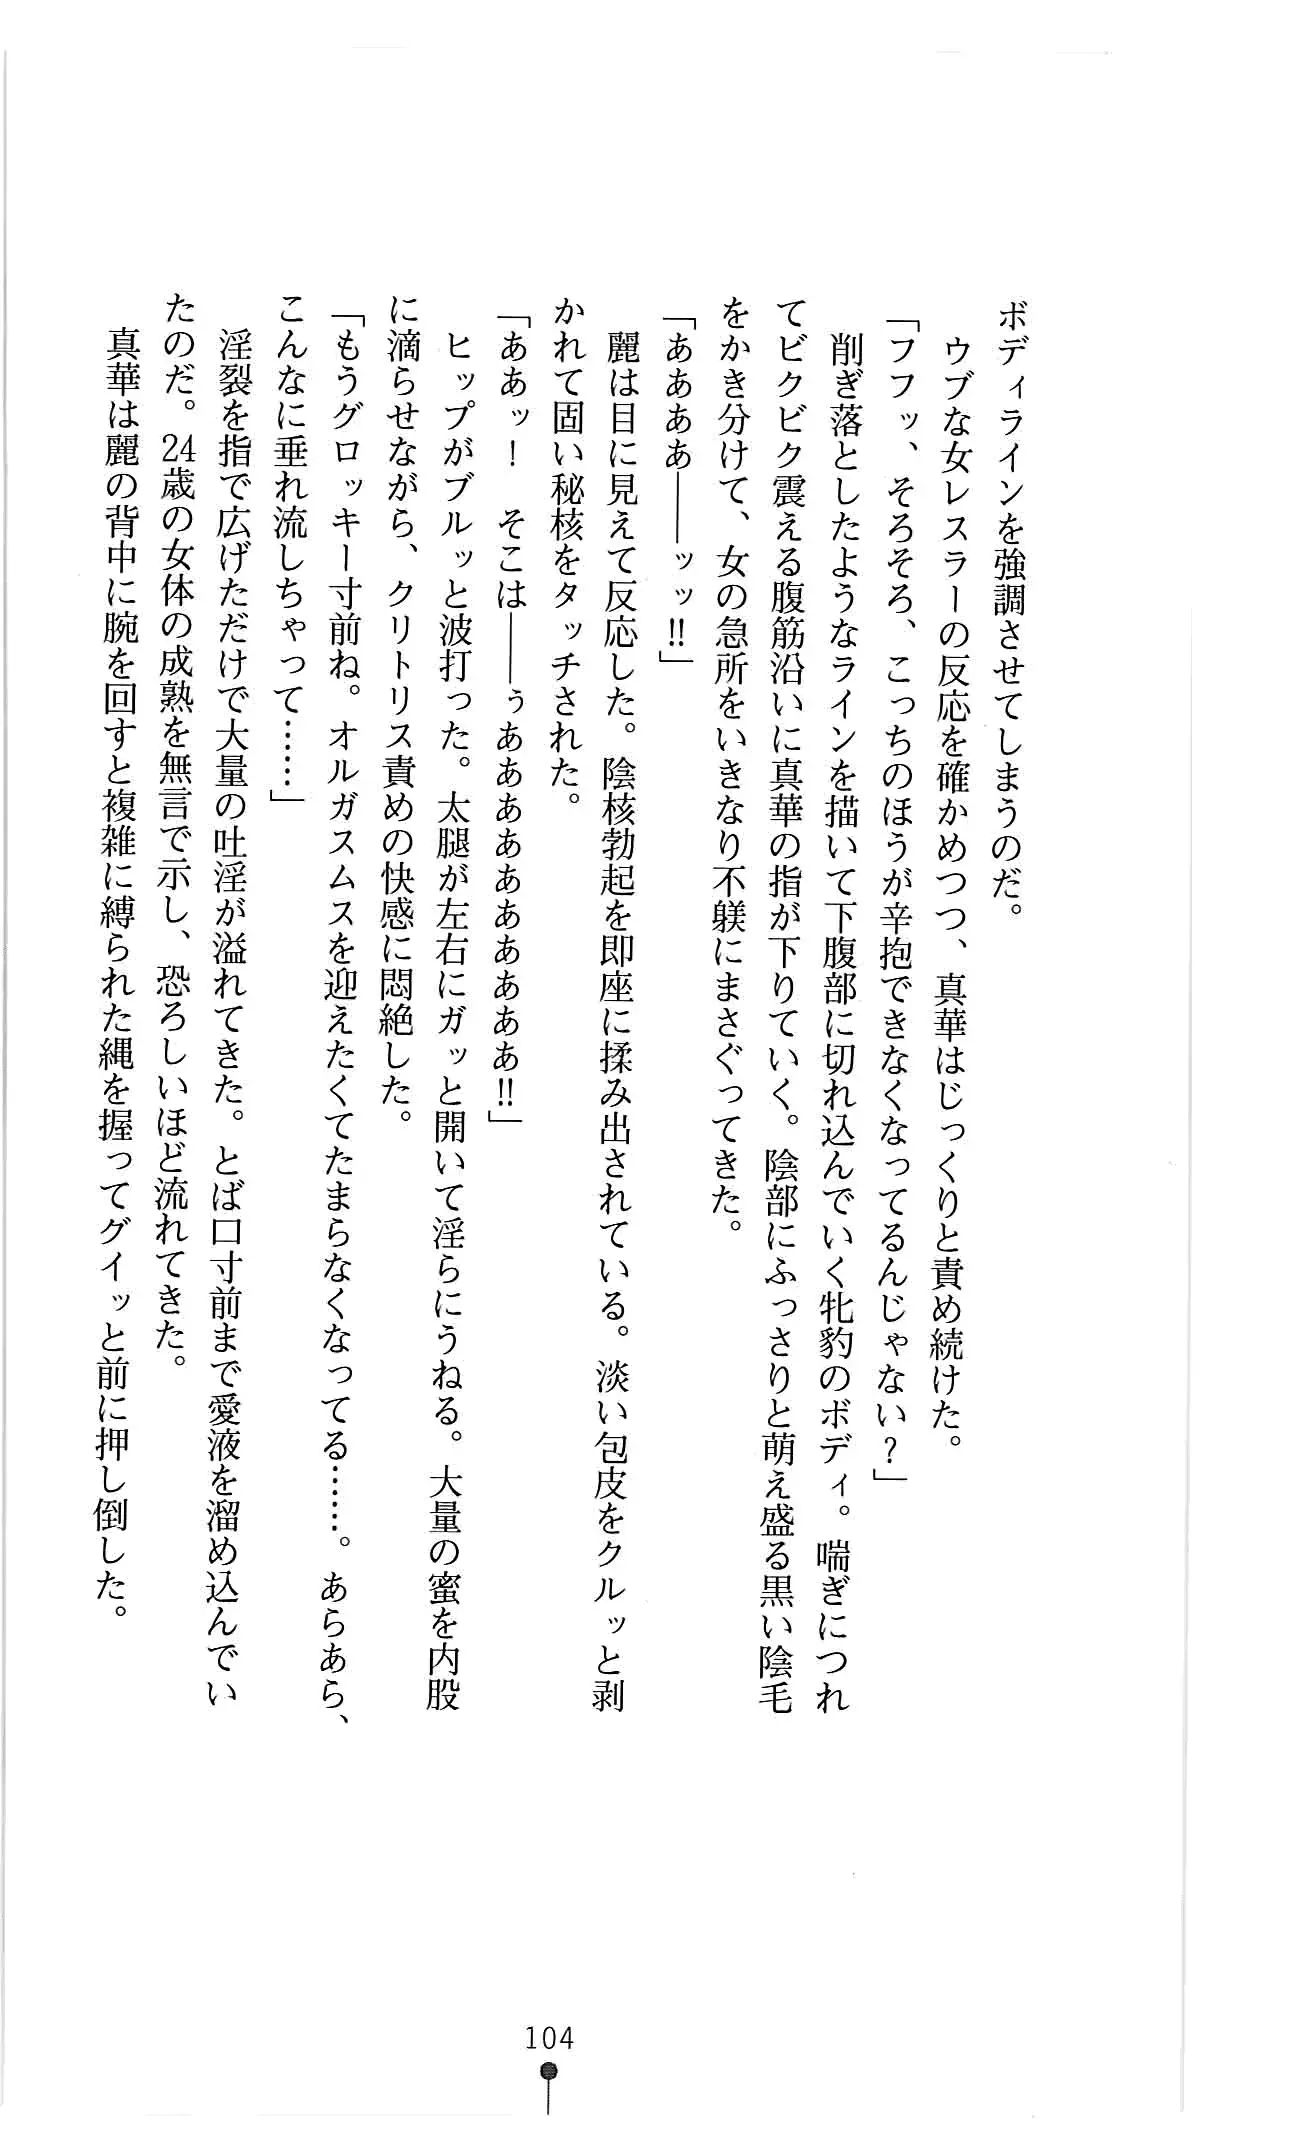 ボディラインを強調させてしまうのだ。
ウブな女レスラーの反応を確かめつつ、真華はじっくりと責め続けた。
「フフッ、そろそろ、こっちのほうが辛抱できなくなってるんじゃない？」
削ぎ落としたようなラインを描いて下腹部に切れ込んでいく牝豹のボディ。喘ぎにつれ
てビクビク震える腹筋沿いに真華の指が下りていく。陰部にふっさりと萌え盛る黒い陰毛
をかき分けて、女の急所をいきなり不躾にまさぐってきた。
「ああああ――ッッ!!」
麗は目に見えて反応した。陰核勃起を即座に揉み出されている。淡い包皮をクルッと剥
かれて固い秘核をタッチされた。
「ああッ！　そこは――ぅああああああああああ!!」
ヒップがブルッと波打った。太腿が左右にガッと開いて淫らにうねる。大量の蜜を内股
に滴らせながら、クリトリス責めの快感に悶絶した。
「もうグロッキー寸前ね。オルガスムスを迎えたくてたまらなくなってる……。あらあら、
こんなに垂れ流しちゃって……」
淫裂を指で広げただけで大量の吐淫が溢れてきた。とば口寸前まで愛液を溜め込んでい
たのだ。24歳の女体の成熟を無言で示し、恐ろしいほど流れてきた。
真華は麗の背中に腕を回すと複雑に縛られた縄を握ってグイッと前に押し倒した。
104